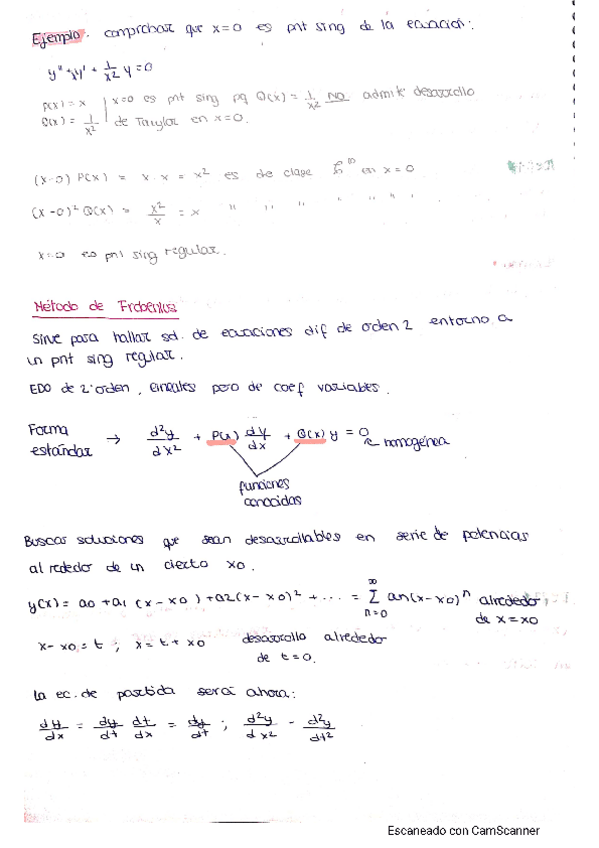 Ejemplo. comprobar que x=0 es pnt sing de la ecuación:
y" + xy' + 1/x² y = 0
P(x) = x | x=0 es pnt sing pq Q(x) = 1/x² NO admite desarrollo
Q(x) = 1/x² | de Taylor en x=0.
(x-0) P(x) = x · x = x² es de clase en x=0
(x-0)² Q(x) = x²/x = x " " " " " " "
x=0 es pnt sing regular.
Método de Frobenius
Sirve para hallar sol. de ecuaciones dif de orden 2 entorno a
un pnt sing regular.
EDO de 2º orden, lineales pero de coef variables.
Forma estándar → d²y/dx² + P(x) dy/dx + Q(x) y = 0
homogénea
funciones
conocidas
Buscar soluciones que sean desarrollables en serie de potencias
alrededor de un cierto x0.
y(x) = a0 + a1 (x-x0) + a2(x-x0)² + ... = ∞ Σ n=0 an(x-x0)ⁿ alrededor
de x=x0
x-x0 = t ; x = t + x0 desarrollo alrededor
de t=0.
La ec. de partida será ahora:
dy/dx = dy/dt dt/dx = dy/dt ; d²y/dx² - d²y/dt²
Escaneado con CamScanner